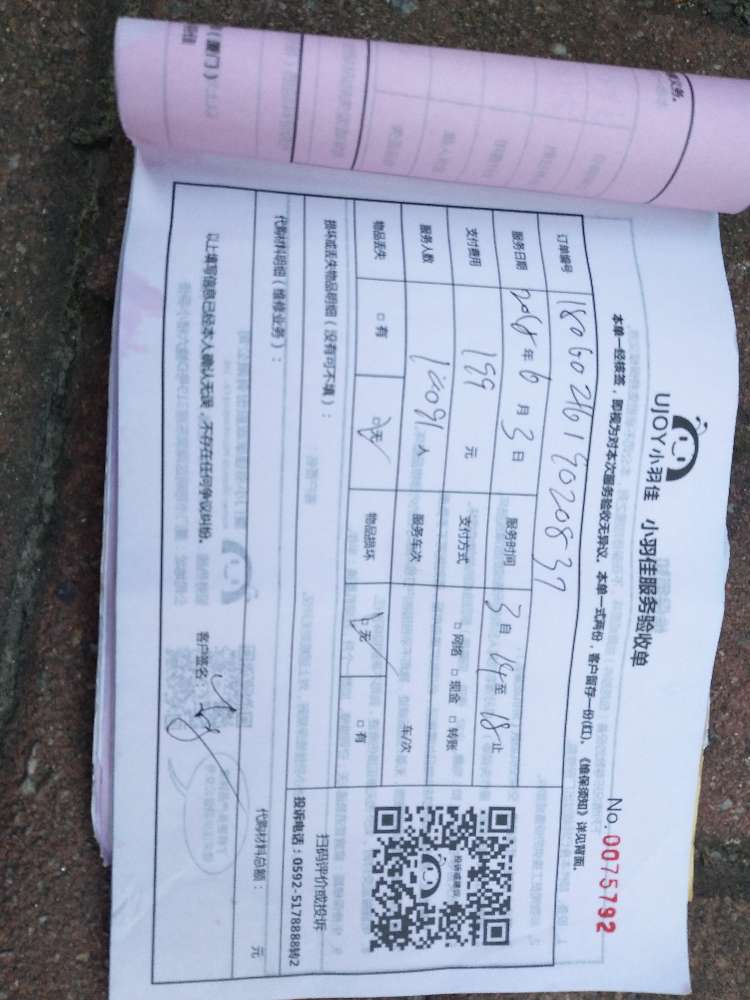 UJOY小羽佳 小羽佳服务验收单
No.0075792
本单一经核签，即视为对本次服务验收无异议。本单一式两份，客户留存一份(红)，《维保须知》详见背面。
订单编号 180602161902083​7
服务日期 2018年6月3日 服务时间 3自14至18止
支付费用 199元 支付方式 □网络 □现金 □转账
服务人数 人 服务车次 车/次
物品丢失 □有 □无 物品损坏 □无 □有
损坏或丢失物品明细（没有可不填）：
投诉或建议
扫码评价或投诉
投诉电话：0592-5178888转2
代购材料明细（维修业务）：
代购材料总额： 元
以上填写信息已经本人确认无误，不存在任何争议纠纷。
客户签名：